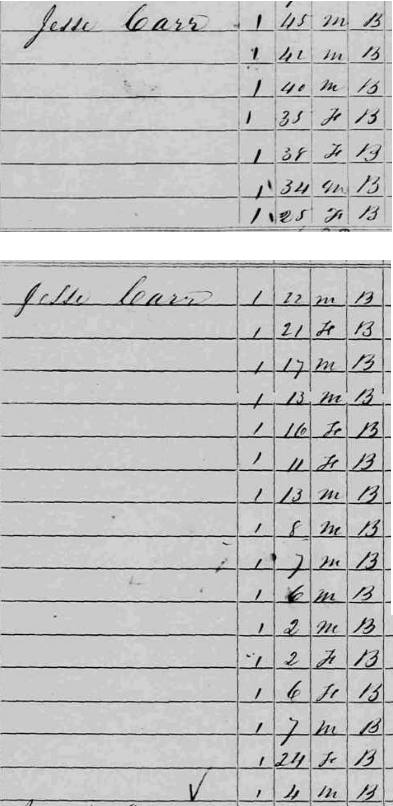 Jesse Carr 1 45 m B
1 42 m B
1 40 m B
1 35 Fe B
1 38 Fe B
1 34 m B
1 25 Fe B
Jesse Carr 1 22 m B
1 21 Fe B
1 17 m B
1 13 m B
1 16 Fe B
1 11 Fe B
1 13 m B
1 8 m B
1 7 m B
1 6 m B
1 2 m B
1 2 Fe B
1 6 Fe B
1 7 m B
1 24 Fe B
1 4 m B